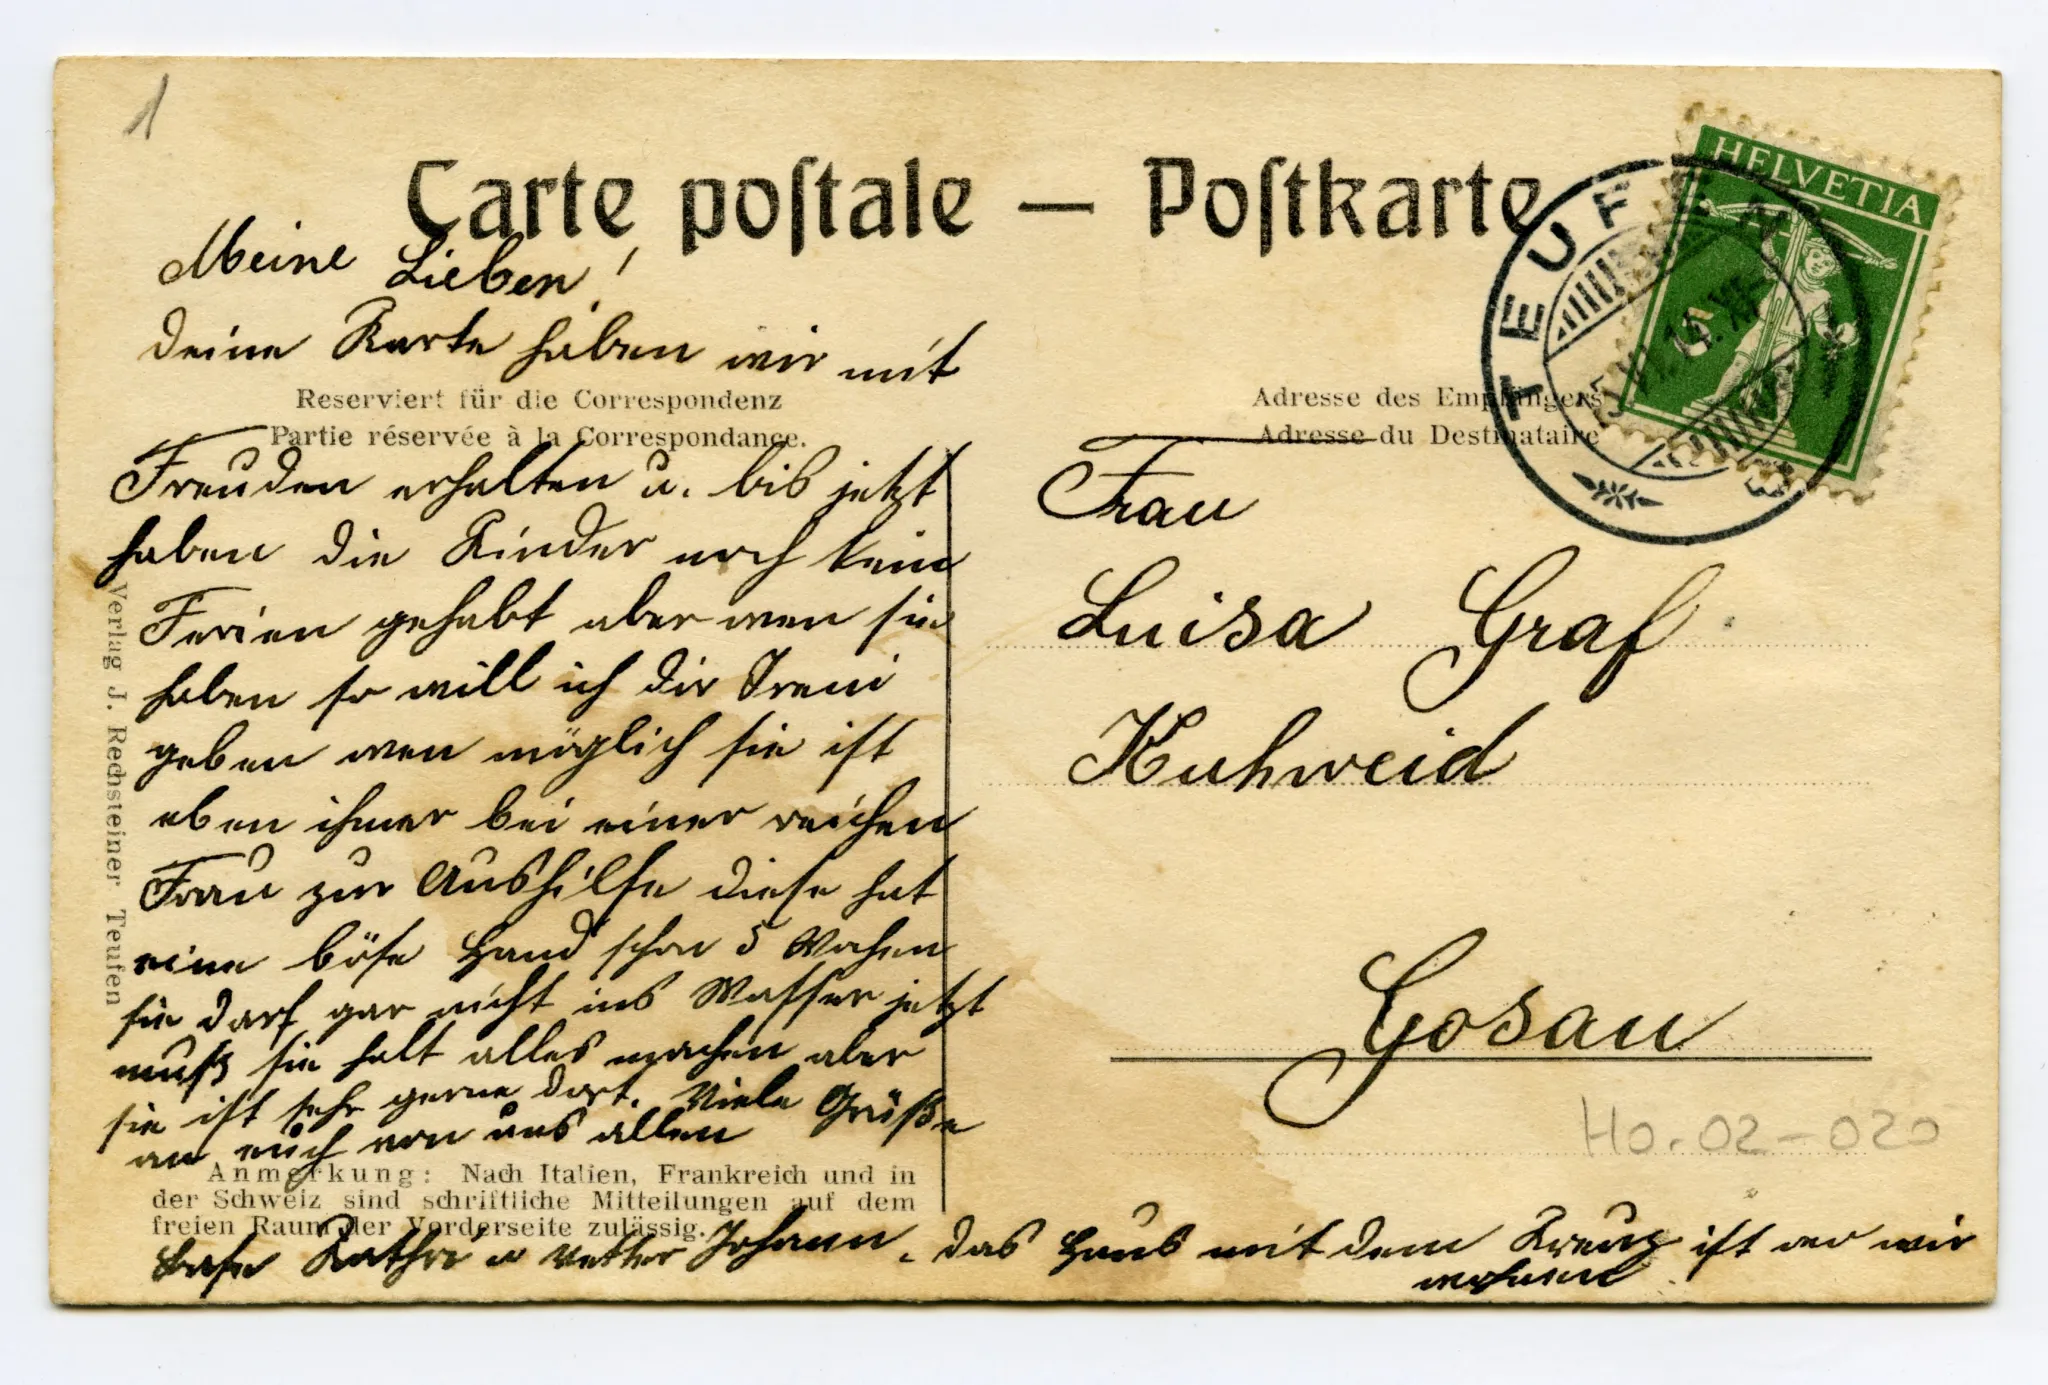 1
Carte postale — Postkarte
HELVETIA
TEUFEN
Meine Lieben!
Deine Karte haben wir mit
Reserviert für die Correspondenz
Partie réservée à la Correspondance.
Freuden erhalten u. bis jetzt
haben die Kinder noch kein
Ferien gehabt aber wen sie
haben so will ich dir Treni
geben wen möglich sie ist
eben ihmer bei einer reichen
Frau zur Aushilfe diese hat
eine böse Hand schon 5 Wochen
sie darf gar nicht ins Wasser jetzt
muß sie halt alles machen aber
sie ist sehr gerne dort. Viele Grüße
an euch von uns allen
Anmerkung: Nach Italien, Frankreich und in
der Schweiz sind schriftliche Mitteilungen auf dem
freien Raum der Vorderseite zulässig.
Base Kathri u Vetter Johann. das Haus mit dem Kreuz ist wo wir
wohnen
Verlag J. Rechsteiner Teufen
Adresse des Empfängers
Adresse du Destinataire
Frau
Luisa Graf
Kuhweid
Gosau
Ho.02-020